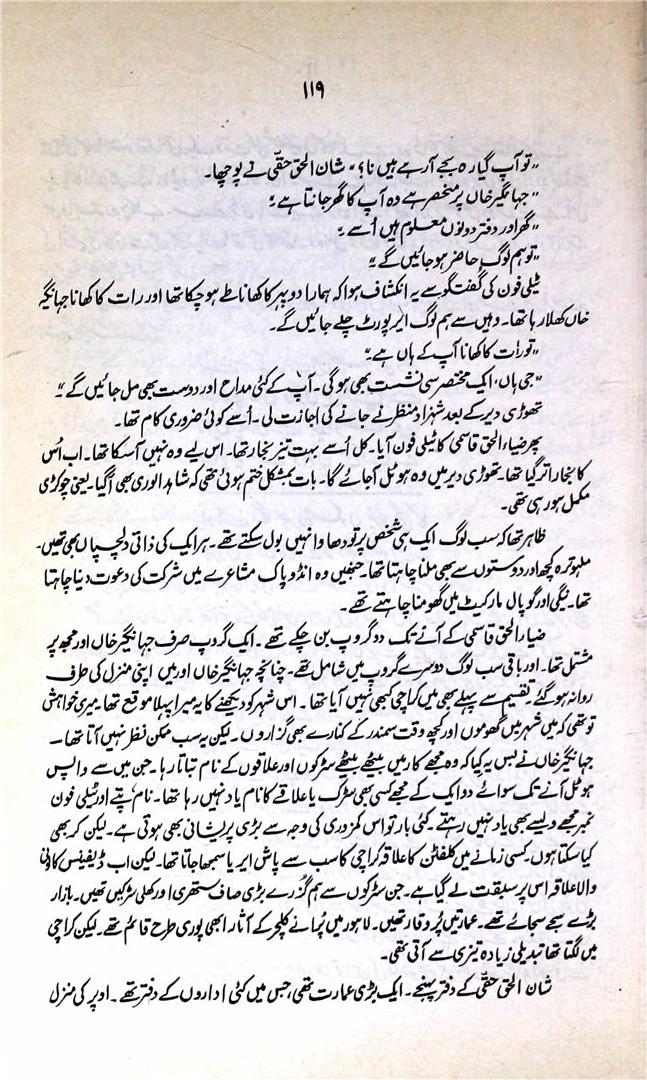 ۱۱۹
”تو آپ گیارہ بجے آ رہے ہیں نا؟“ شان الحق حقّی نے پوچھا۔
”جہانگیر خاں پر منحصر ہے وہ آپ کا گھر جانتا ہے؟“
”گھر اور دفتر دونوں معلوم ہیں اُسے۔“
”تو ہم لوگ حاضر ہو جائیں گے۔“
ٹیلی فون کی گفتگو سے یہ انکشاف ہوا کہ ہمارا دوپہر کا کھانا طے ہو چکا تھا اور رات کا کھانا جہانگیر
خاں کھلا رہا تھا۔ وہیں سے ہم لوگ ایرپورٹ چلے جائیں گے۔
”تو رات کا کھانا آپ کے ہاں ہے؟“
”جی ہاں، ایک مختصر سی نشست بھی ہوگی۔ آپ کے کئی مداح اور دوست بھی مل جائیں گے۔“
تھوڑی دیر کے بعد شہزاد منظر نے جانے کی اجازت لی۔ اُسے کوئی ضروری کام تھا۔
پھر ضیاء الحق قاسمی کا ٹیلی فون آیا۔ کل اُسے بہت تیز بخار تھا۔ اس لیے وہ نہیں آ سکا تھا۔ اب اُس
کا بخار اتر گیا تھا۔ تھوڑی دیر میں وہ ہوٹل آ جائے گا۔ بات بمشکل ختم ہوئی تھی کہ شاہد الوری بھی آ گیا۔ یعنی چوکڑی
مکمل ہو رہی تھی۔
ظاہر تھا کہ سب لوگ ایک ہی شخص پر تو دھاوا نہیں بول سکتے تھے۔ ہر ایک کی ذاتی دلچسپیاں بھی تھیں۔
ملہوترہ کچھ اور دوستوں سے بھی ملنا چاہتا تھا۔ جنہیں وہ انڈو پاک مشاعرے میں شرکت کی دعوت دینا چاہتا
تھا۔ نیگی اور گوپال مارکیٹ میں گھومنا چاہتے تھے۔
ضیاء الحق قاسمی کے آنے تک دو گروپ بن چکے تھے۔ ایک گروپ صرف جہانگیر خاں اور مجھ پر
مشتمل تھا۔ اور باقی سب لوگ دوسرے گروپ میں شامل تھے۔ چنانچہ جہانگیر خاں اور میں اپنی منزل کی طرف
روانہ ہو گئے۔ تقسیم سے پہلے بھی میں کراچی کبھی نہیں آیا تھا۔ اس شہر کو دیکھنے کا یہ میرا پہلا موقع تھا۔ میری خواہش
تو تھی کہ میں شہر میں گھوموں اور کچھ وقت سمندر کے کنارے بھی گزاروں۔ لیکن یہ سب ممکن نظر نہیں آتا تھا۔
جہانگیر خاں نے بس یہ کیا کہ وہ مجھے کار میں بیٹھے بیٹھے سڑکوں اور علاقوں کے نام بتاتا رہا۔ جن میں سے واپس
ہوٹل آنے تک سوائے دو ایک کے مجھے کسی بھی سڑک یا علاقے کا نام یاد نہیں رہا تھا۔ نام پتے اور ٹیلی فون
نمبر مجھے ویسے بھی یاد نہیں رہتے۔ کئی بار تو اس کمزوری کی وجہ سے بڑی پریشانی بھی ہوتی ہے۔ لیکن کر بھی
کیا سکتا ہوں۔ کسی زمانے میں کلفٹن کا علاقہ کراچی کا سب سے پاش ایریا سمجھا جاتا تھا۔ لیکن اب ڈیفینس کالونی
والا علاقہ اس پر سبقت لے گیا ہے۔ جن سڑکوں سے ہم گزرے بڑی صاف ستھری اور کھلی سڑکیں تھیں۔ بازار
بڑے سجے سجائے تھے۔ عمارتیں پُر وقار تھیں۔ لاہور میں پُرانے کلچر کے آثار ابھی پوری طرح قائم تھے۔ لیکن کراچی
میں لگتا تھا تبدیلی زیادہ تیزی سے آئی تھی۔
شان الحق حقّی کے دفتر پہنچے۔ ایک بڑی عمارت تھی، جس میں کئی اداروں کے دفتر تھے۔ اوپر کی منزل